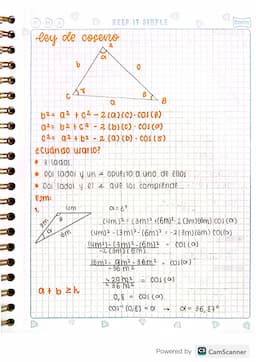 KEEP IT SIMPLE
Ley de coseno
b c
C B
a
b² = a² + c² - 2(a)(c)·cos(B)
a² = b² + c² - 2(b)(c)·cos(α)
c² = a² + b² - 2(a)(b)·cos(
¿Cuándo usarlo?
* 3 lados
* Dos lados y un ∡ opuesto a uno de ellos
* Dos lados y el ∡ que los comprende
Ejm:
1. 4m
3m
6m
α = ?
(4m)² = (3m)² + (6m)² - 2(3m)(6m) cos(α)
(4m)² - (3m)² - (6m)² = -2(3m)(6m) cos(α)
(4m)² - (3m)² - (6m)² = cos(α)
-2(3m)(6m)
16m² - 9m² - 36m² = cos(α)
-36m²
-29m² = cos(α)
-36m²
a + b ≥ h
0,8 = cos(α)
cos⁻¹(0,8) = α → α = 36,87°
Powered by CamScanner